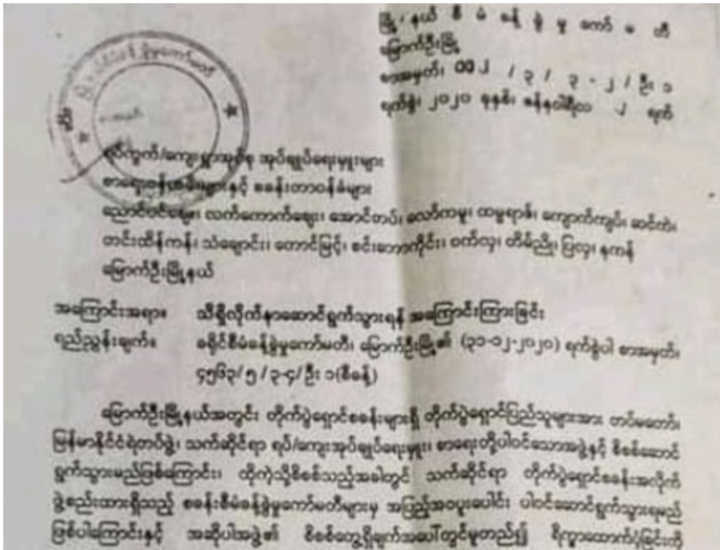 မြို့နယ်စီမံခန့်ခွဲမှုကော်မတီ
မြောက်ဦးမြို့
စာအမှတ်၊ / ၃ / ၃ - ၂ / ဦး ၁
ရက်စွဲ၊ ၂၀၂၀ ခုနှစ်၊ ဇန်နဝါရီလ ၂ ရက်
ရပ်ကွက်/ကျေးရွာအုပ်စု အုပ်ချုပ်ရေးမှူးများ
စာရေးဝန်ထမ်းများနှင့် စခန်းတာဝန်ခံများ
ညောင်ပင်ဈေး၊ လက်ကောက်ဈေး၊ အောင်တပ်၊ ကျောက်ကျပ်၊ ဆင်ကဲ၊
တင်းထိန်ကန်၊ သံချောင်း၊ တောင်မြင့်၊ ဝက်လှ၊ တိမ်ညို၊ ပြလှ၊ နကန်
မြောက်ဦးမြို့နယ်
အကြောင်းအရာ။ သိရှိလိုက်နာဆောင်ရွက်သွားရန် အကြောင်းကြားခြင်း
ရည်ညွှန်းချက်။ ခရိုင်စီမံခန့်ခွဲမှုကော်မတီ၊ မြောက်ဦးမြို့၏ (၃၁-၁၂-၂၀၂၀) ရက်စွဲပါ စာအမှတ်၊
၄၅၆၃/၅ / ၃-၄/ဦး ၁(စီခန့်)
မြောက်ဦးမြို့နယ်အတွင်း တိုက်ပွဲရှောင်စခန်းများရှိ တိုက်ပွဲရှောင်ပြည်သူများအား တပ်မတော်၊
မြန်မာနိုင်ငံရဲတပ်ဖွဲ့၊ သက်ဆိုင်ရာ ရပ်/ကျေးအုပ်ချုပ်ရေးမှူး၊ စာရေးတို့ပါဝင်သောအဖွဲ့နှင့် စိစစ်ဆောင်
ရွက်သွားမည်ဖြစ်ကြောင်း၊ ထိုကဲ့သို့စိစစ်သည့်အခါတွင် သက်ဆိုင်ရာ တိုက်ပွဲရှောင်စခန်းအလိုက်
ဖွဲ့စည်းထားရှိသည့် စခန်းစီမံခန့်ခွဲမှုကော်မတီများမှ အပြည့်အဝပူးပေါင်း ပါဝင်ဆောင်ရွက်သွားရမည်
ဖြစ်ပါကြောင်းနှင့် အဆိုပါအဖွဲ့၏ စိစစ်တွေ့ရှိချက်အပေါ်တွင်မူတည်၍ ရိက္ခာထောက်ပံ့ခြင်းကို